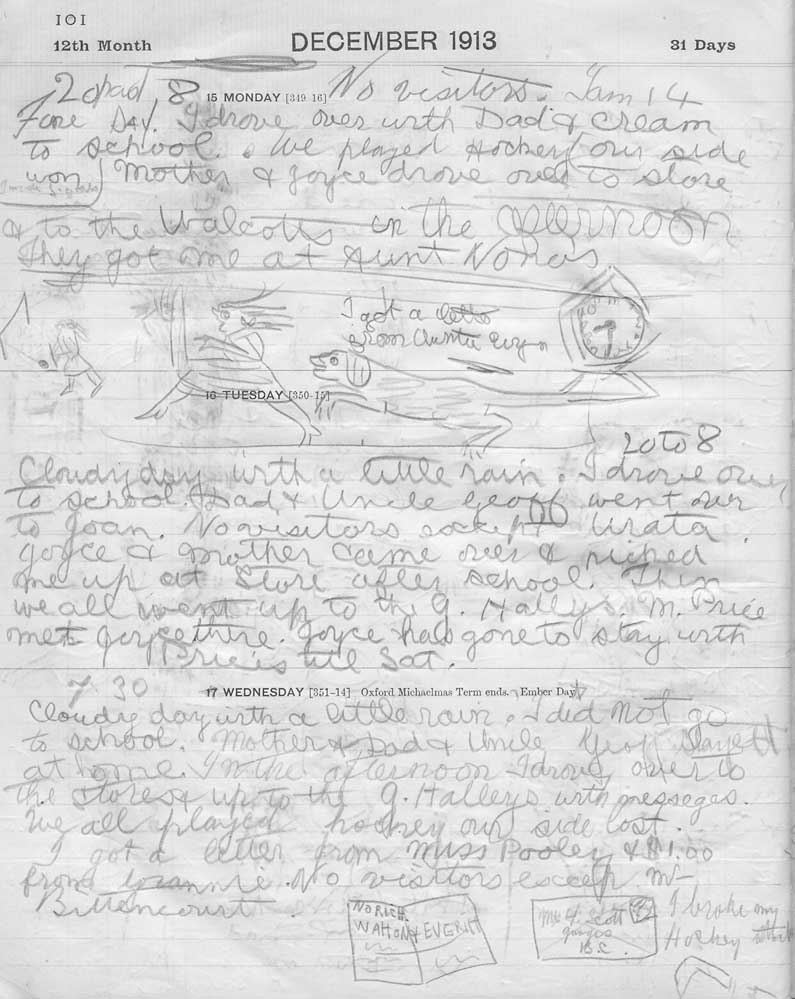 101
12th Month DECEMBER 1913 31 Days
2 8 15 MONDAY [349-16] No visitors. Jam 14
Fine Day. I drove over with Dad & cream
to school. We played Hockey our side
won Mother & Joyce drove over to store
& to the Walcotts in the afternoon
They got me at Aunt Noras
I got a letter
from Auntie
16 TUESDAY [350-15]
20 to 8
Cloudy day with a little rain. I drove over
to school. Dad & Uncle Geoff went over
to Joan. No visitors except Urata.
Joyce & mother came over & picked
me up at Store after school. Then
we all went up to the G. Halleys. M. Price
met Joyce there. Joyce has gone to stay with
Prices till Sat.
7.30 17 WEDNESDAY [351-14] Oxford Michaelmas Term ends. Ember Day
Cloudy day with a little rain. I did Not go
to school. Mother & Dad & Uncle Geoff stayed
at ome. In the afternoon I drove over to
the store & up to the G. Halleys with messeges.
We all played hockey our side lost.
I got a letter from Miss Pooley & $1.00
from Grannie. No visitors except Mr
Bittancourt.
I broke my
Hockey stick
WAHON & EVERITT
Mr. F. Scott
Ganges
B.C.